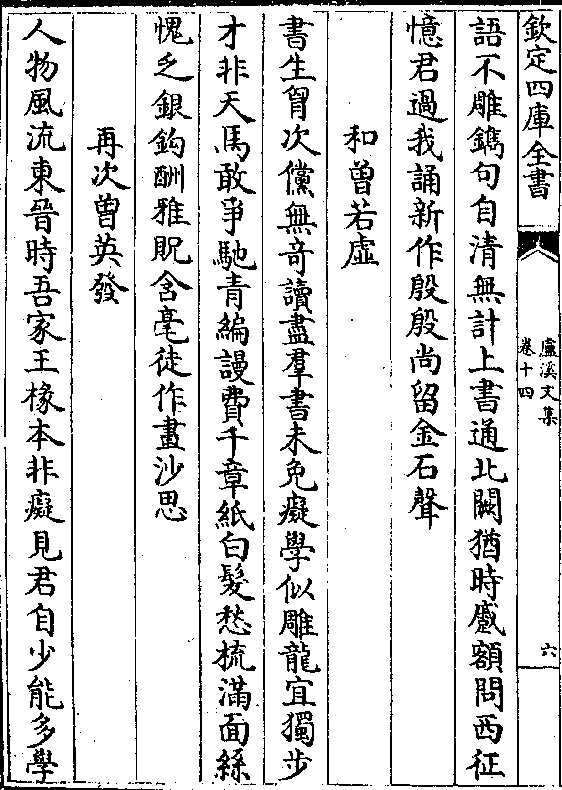 欽定四庫全書
盧溪文集
卷十四
六
語不雕鐫句自清無計上書通北闕猶時蹙額問西征
憶君過我誦新作殷殷尚留金石聲
和曽若虛
書生胷次儻無竒讀盡羣書未免癡學似雕龍宜獨步
才非天馬敢爭馳青編謾費千章紙白髮愁梳滿面絲
愧乏銀鈎酬雅貺含毫徒作畫沙思
再次曽英發
人物風流東晉時吾家王椽本非癡見君自少能多學